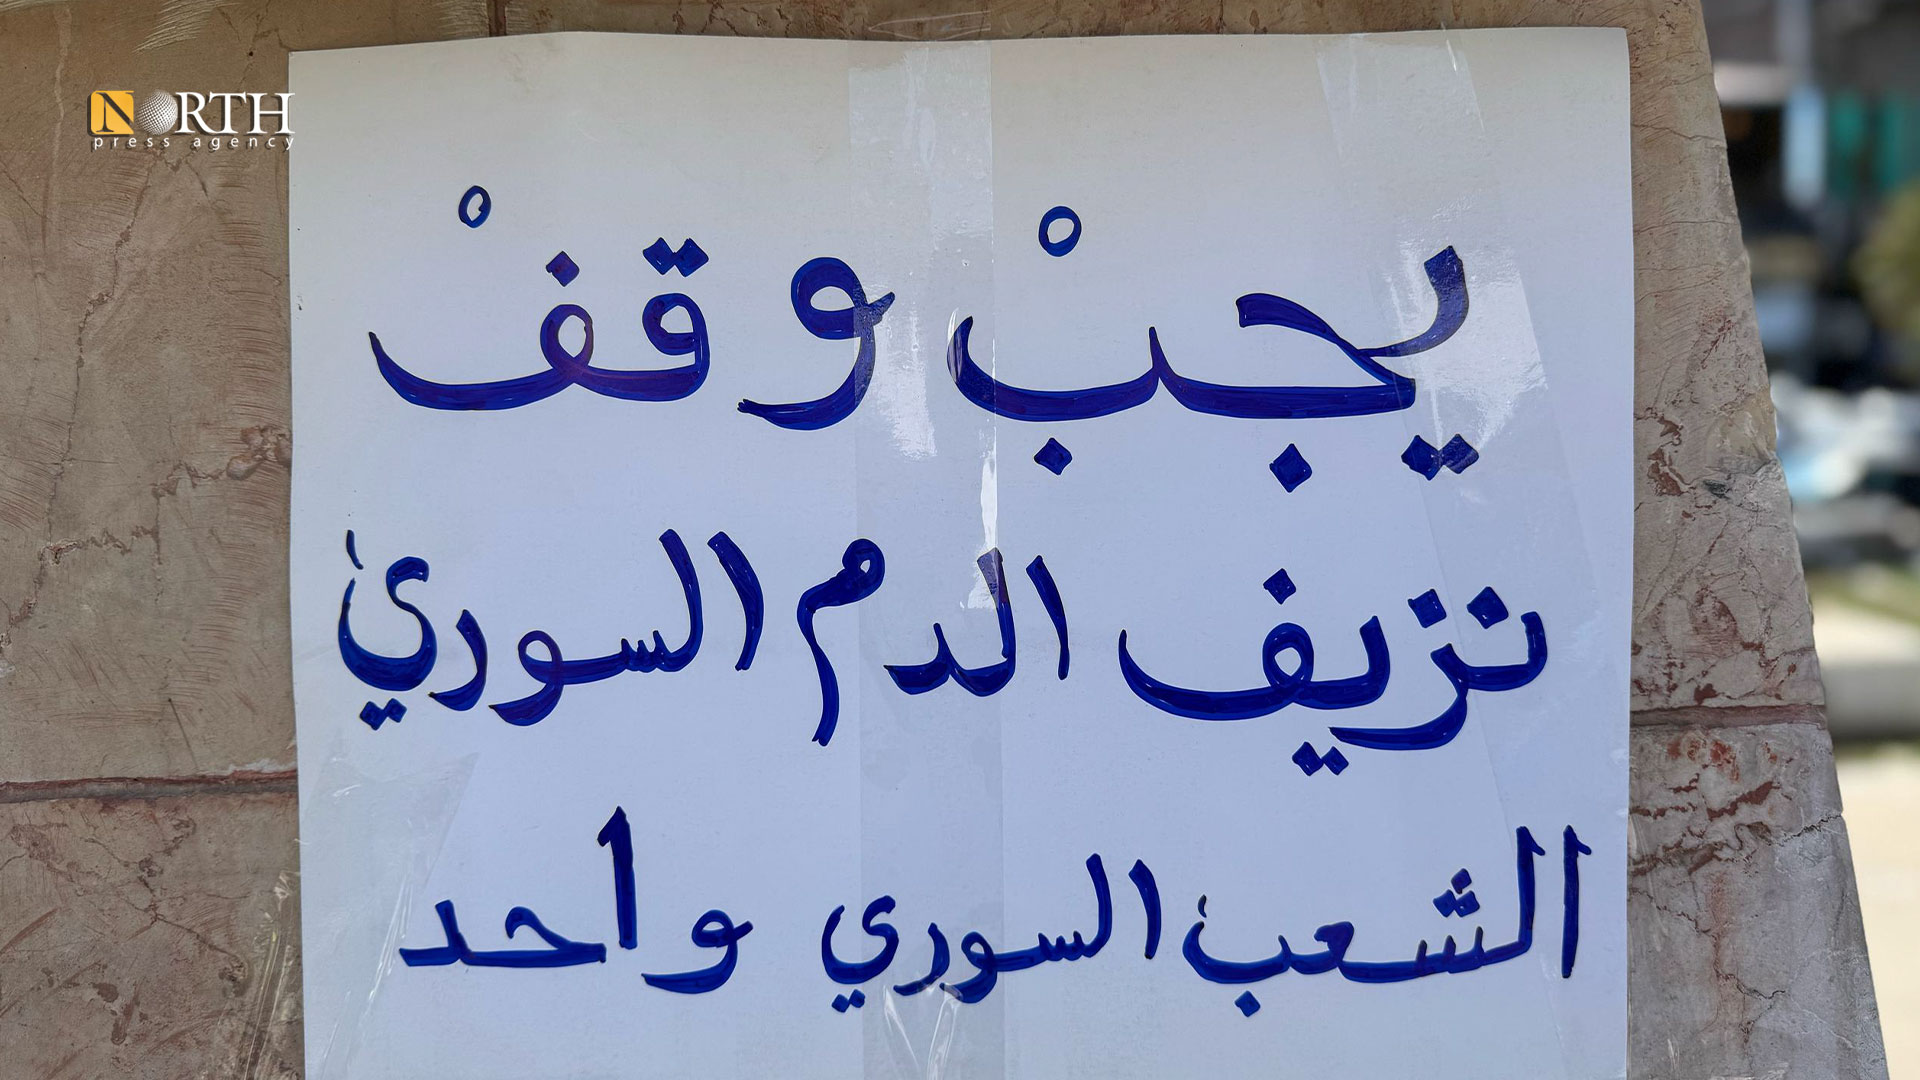 NORTH
press agency
يجبْ وقفْ
نزيف الدم السوري
الشعب السوري واحد